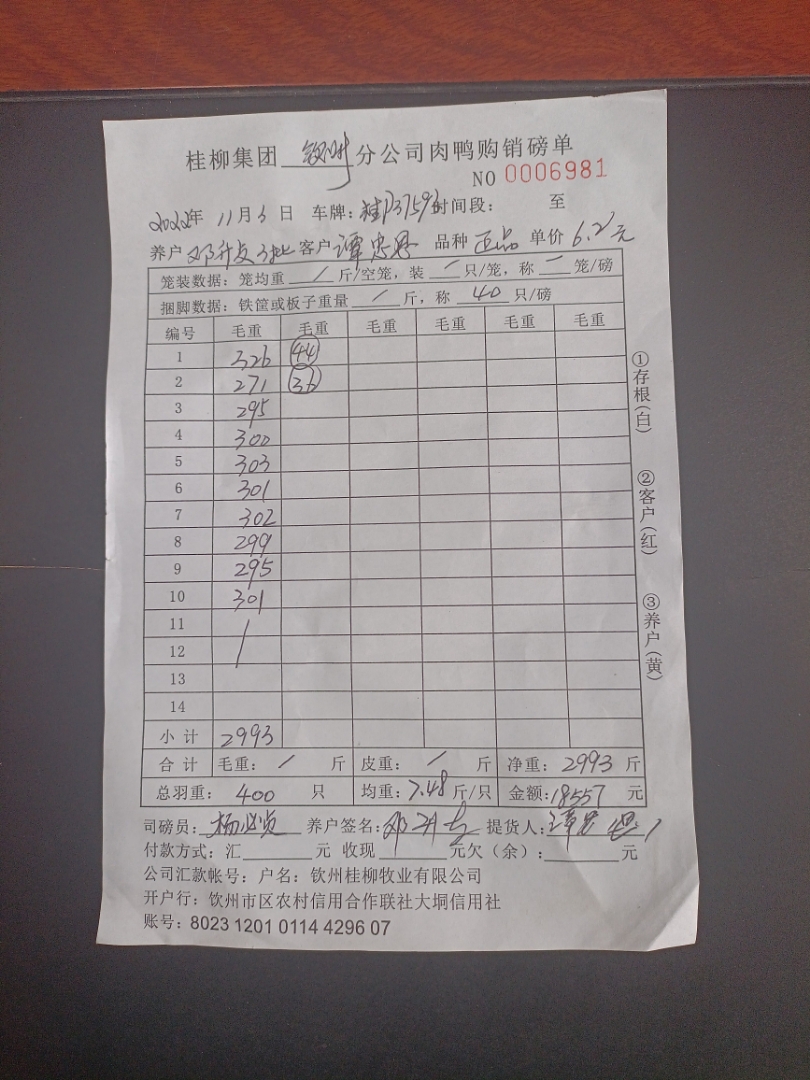 桂柳集团 钦州 分公司肉鸭购销磅单
NO 0006981
2022年 11月6日 车牌: 时间段: 至
养户 邓升 客户 谭忠 品种 正品 单价 6.2元
笼装数据:笼均重 / 斤/空笼,装 / 只/笼,称 / 笼/磅
捆脚数据:铁筐或板子重量 / 斤,称 40 只/磅
编号 毛重 毛重 毛重 毛重 毛重 毛重
1 326 44
2 271 36
3 295
4 300
5 303
6 301
7 302
8 299
9 295
10 301
11 /
12
13
14
小计 2993
合计 毛重: / 斤 皮重: / 斤 净重: 2993 斤
总羽重: 400 只 均重: 7.48 斤/只 金额: 18557 元
司磅员: 杨 养户签名: 邓升 提货人: 谭忠
付款方式:汇 元 收现 元欠(余): 元
公司汇款帐号:户名:钦州桂柳牧业有限公司
开户行:钦州市区农村信用合作联社大垌信用社
账号:8023 1201 0114 4296 07
①存根(白)
②客户(红)
③养户(黄)